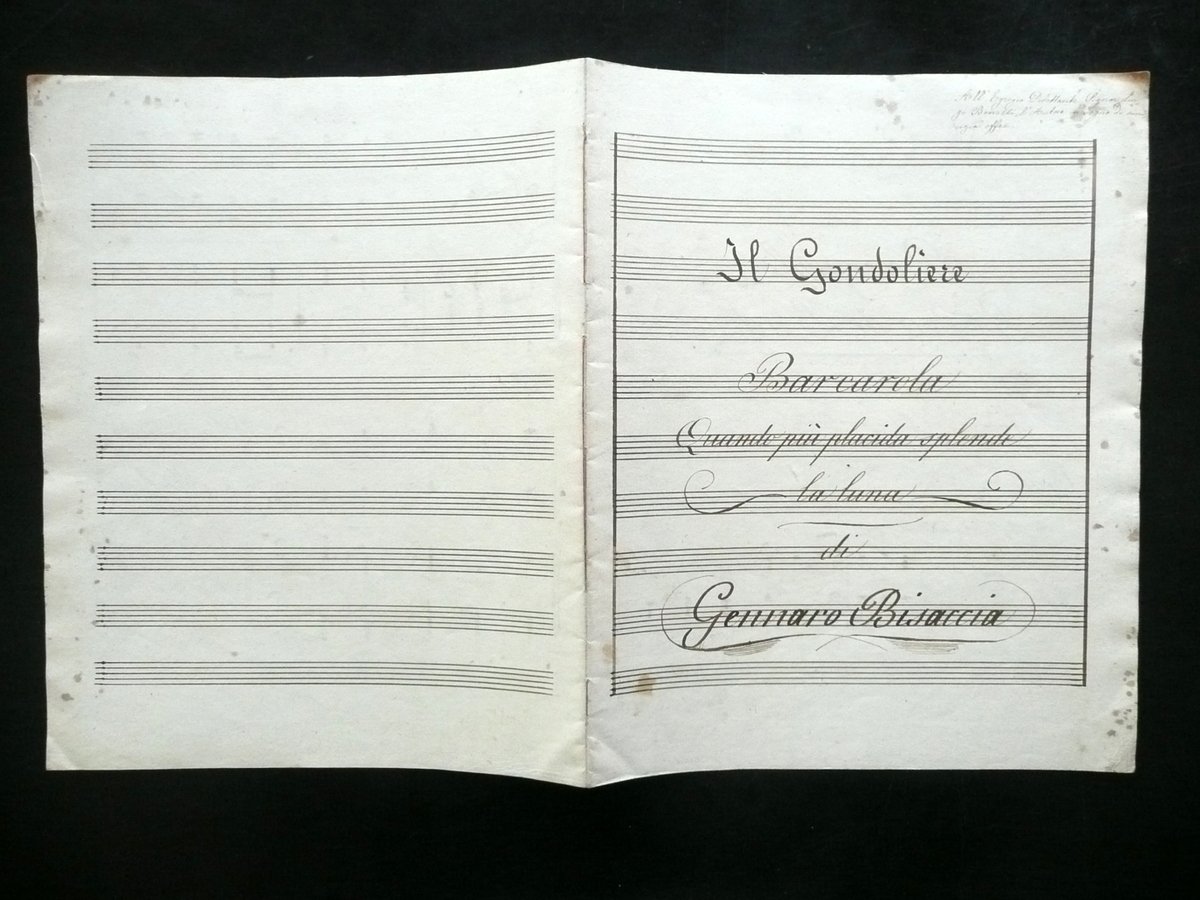 All' Egregio Dilettante Signor
l'Autore in segno di
Il Gondoliere
Barcarola
Quando più placida splende
la luna
di
Gennaro Bisaccia